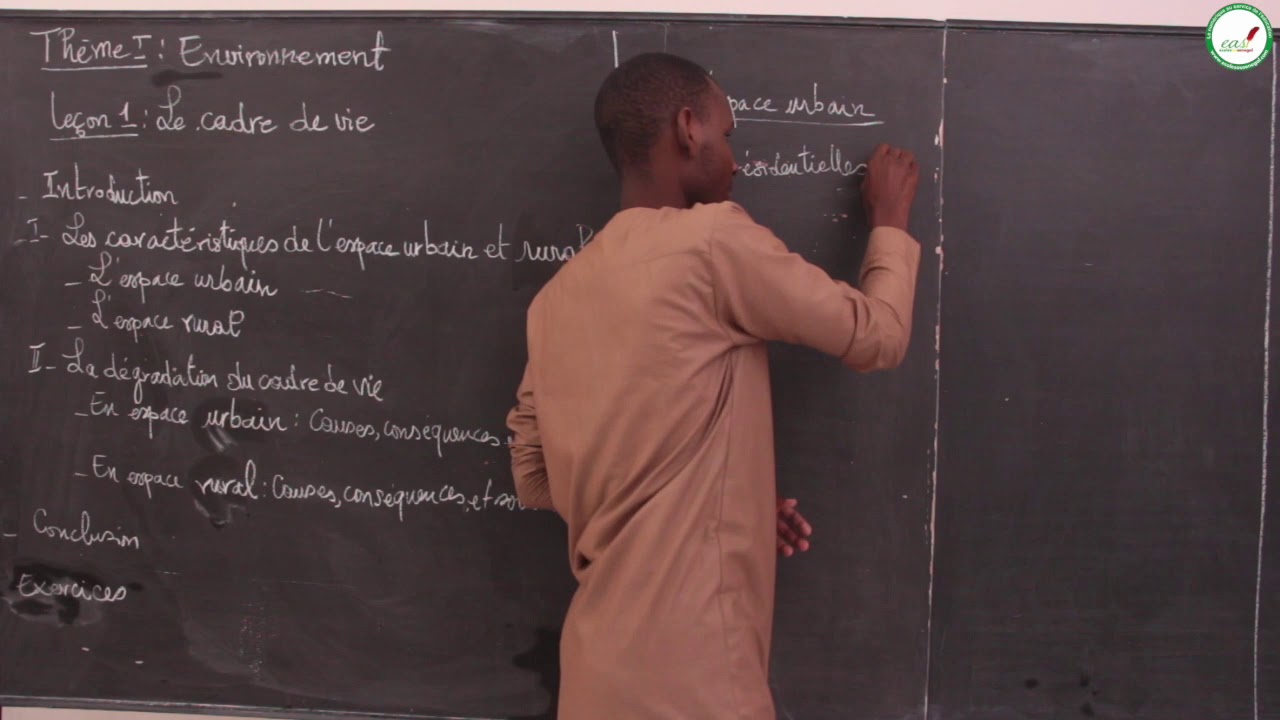 Thème I : Environnement
Leçon 1 : Le cadre de vie
- Introduction
- I - Les caractéristiques de l'espace urbain et rural
- L'espace urbain
- L'espace rural
II - La dégradation du cadre de vie
- En espace urbain : Causes, conséquences
- En espace rural : Causes, conséquences, et
- Conclusion
Exercices
pace urbain
ésidentielles
eas